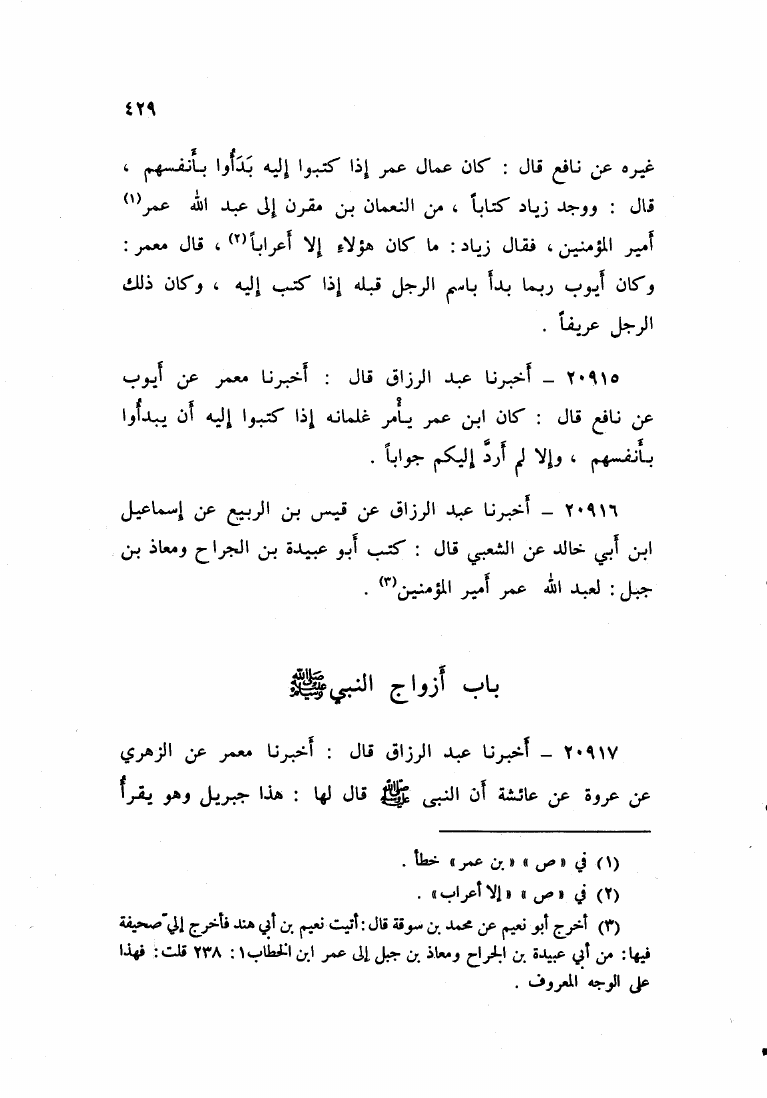 ٤٢٩
غيره عن نافع قال : كان عمال عمر إذا كتبوا إليه بَدَأُوا بأَنفسهم ،
قال : ووجد زياد كتاباً ، من النعمان بن مقرن إلى عبد الله عمر(١)
أمير المؤمنين ، فقال زياد : ما كان هؤلاء إلا أعراباً(٢) ، قال معمر :
وكان أيوب ربما بدأ باسم الرجل قبله إذا كتب إليه ، وكان ذلك
الرجل عريفاً .
٢٠٩١٥ – أخبرنا عبد الرزاق قال : أخبرنا معمر عن أيوب
عن نافع قال : كان ابن عمر يأْمر غلمانه إذا كتبوا إليه أن يبدأُوا
بأَنفسهم ، وإلا لم أردَّ إليكم جواباً .
٢٠٩١٦ – أخبرنا عبد الرزاق عن قيس بن الربيع عن إسماعيل
ابن أبي خالد عن الشعبي قال : كتب أبو عبيدة بن الجراح ومعاذ بن
جبل : لعبد الله عمر أمير المؤمنين(٣) .
باب أزواج النبي ﷺ
٢٠٩١٧ – أخبرنا عبد الرزاق قال : أخبرنا معمر عن الزهري
عن عروة عن عائشة أن النبى ﷺ قال لها : هذا جبريل وهو يقرأُ
(١) في «ص» «بن عمر» خطأ .
(٢) في «ص» «إلا أعراب» .
(٣) أخرج أبو نعيم عن محمد بن سوقة قال : أتيت نعيم بن أبي هند فأخرج إليّ صحيفة
فيها : من أبي عبيدة بن الجراح ومعاذ بن جبل إلى عمر ابن الخطاب ١ : ٢٣٨ قلت : فهذا
على الوجه المعروف .